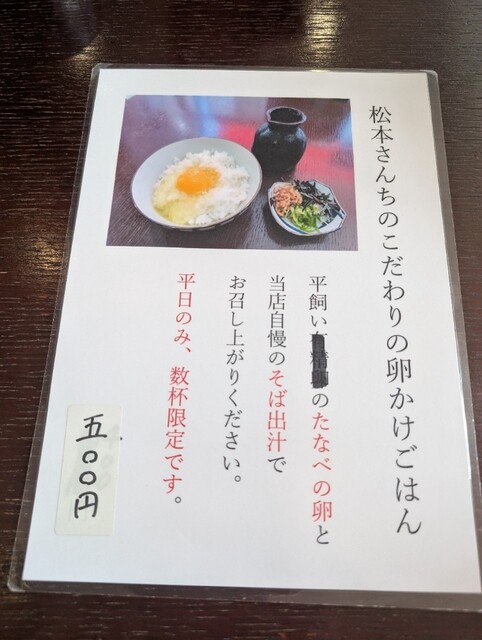 松本さんちのこだわりの卵かけごはん
平飼いのたなべの卵と
当店自慢のそば出汁で
お召し上がりください。
平日のみ、数杯限定です。
五〇〇円